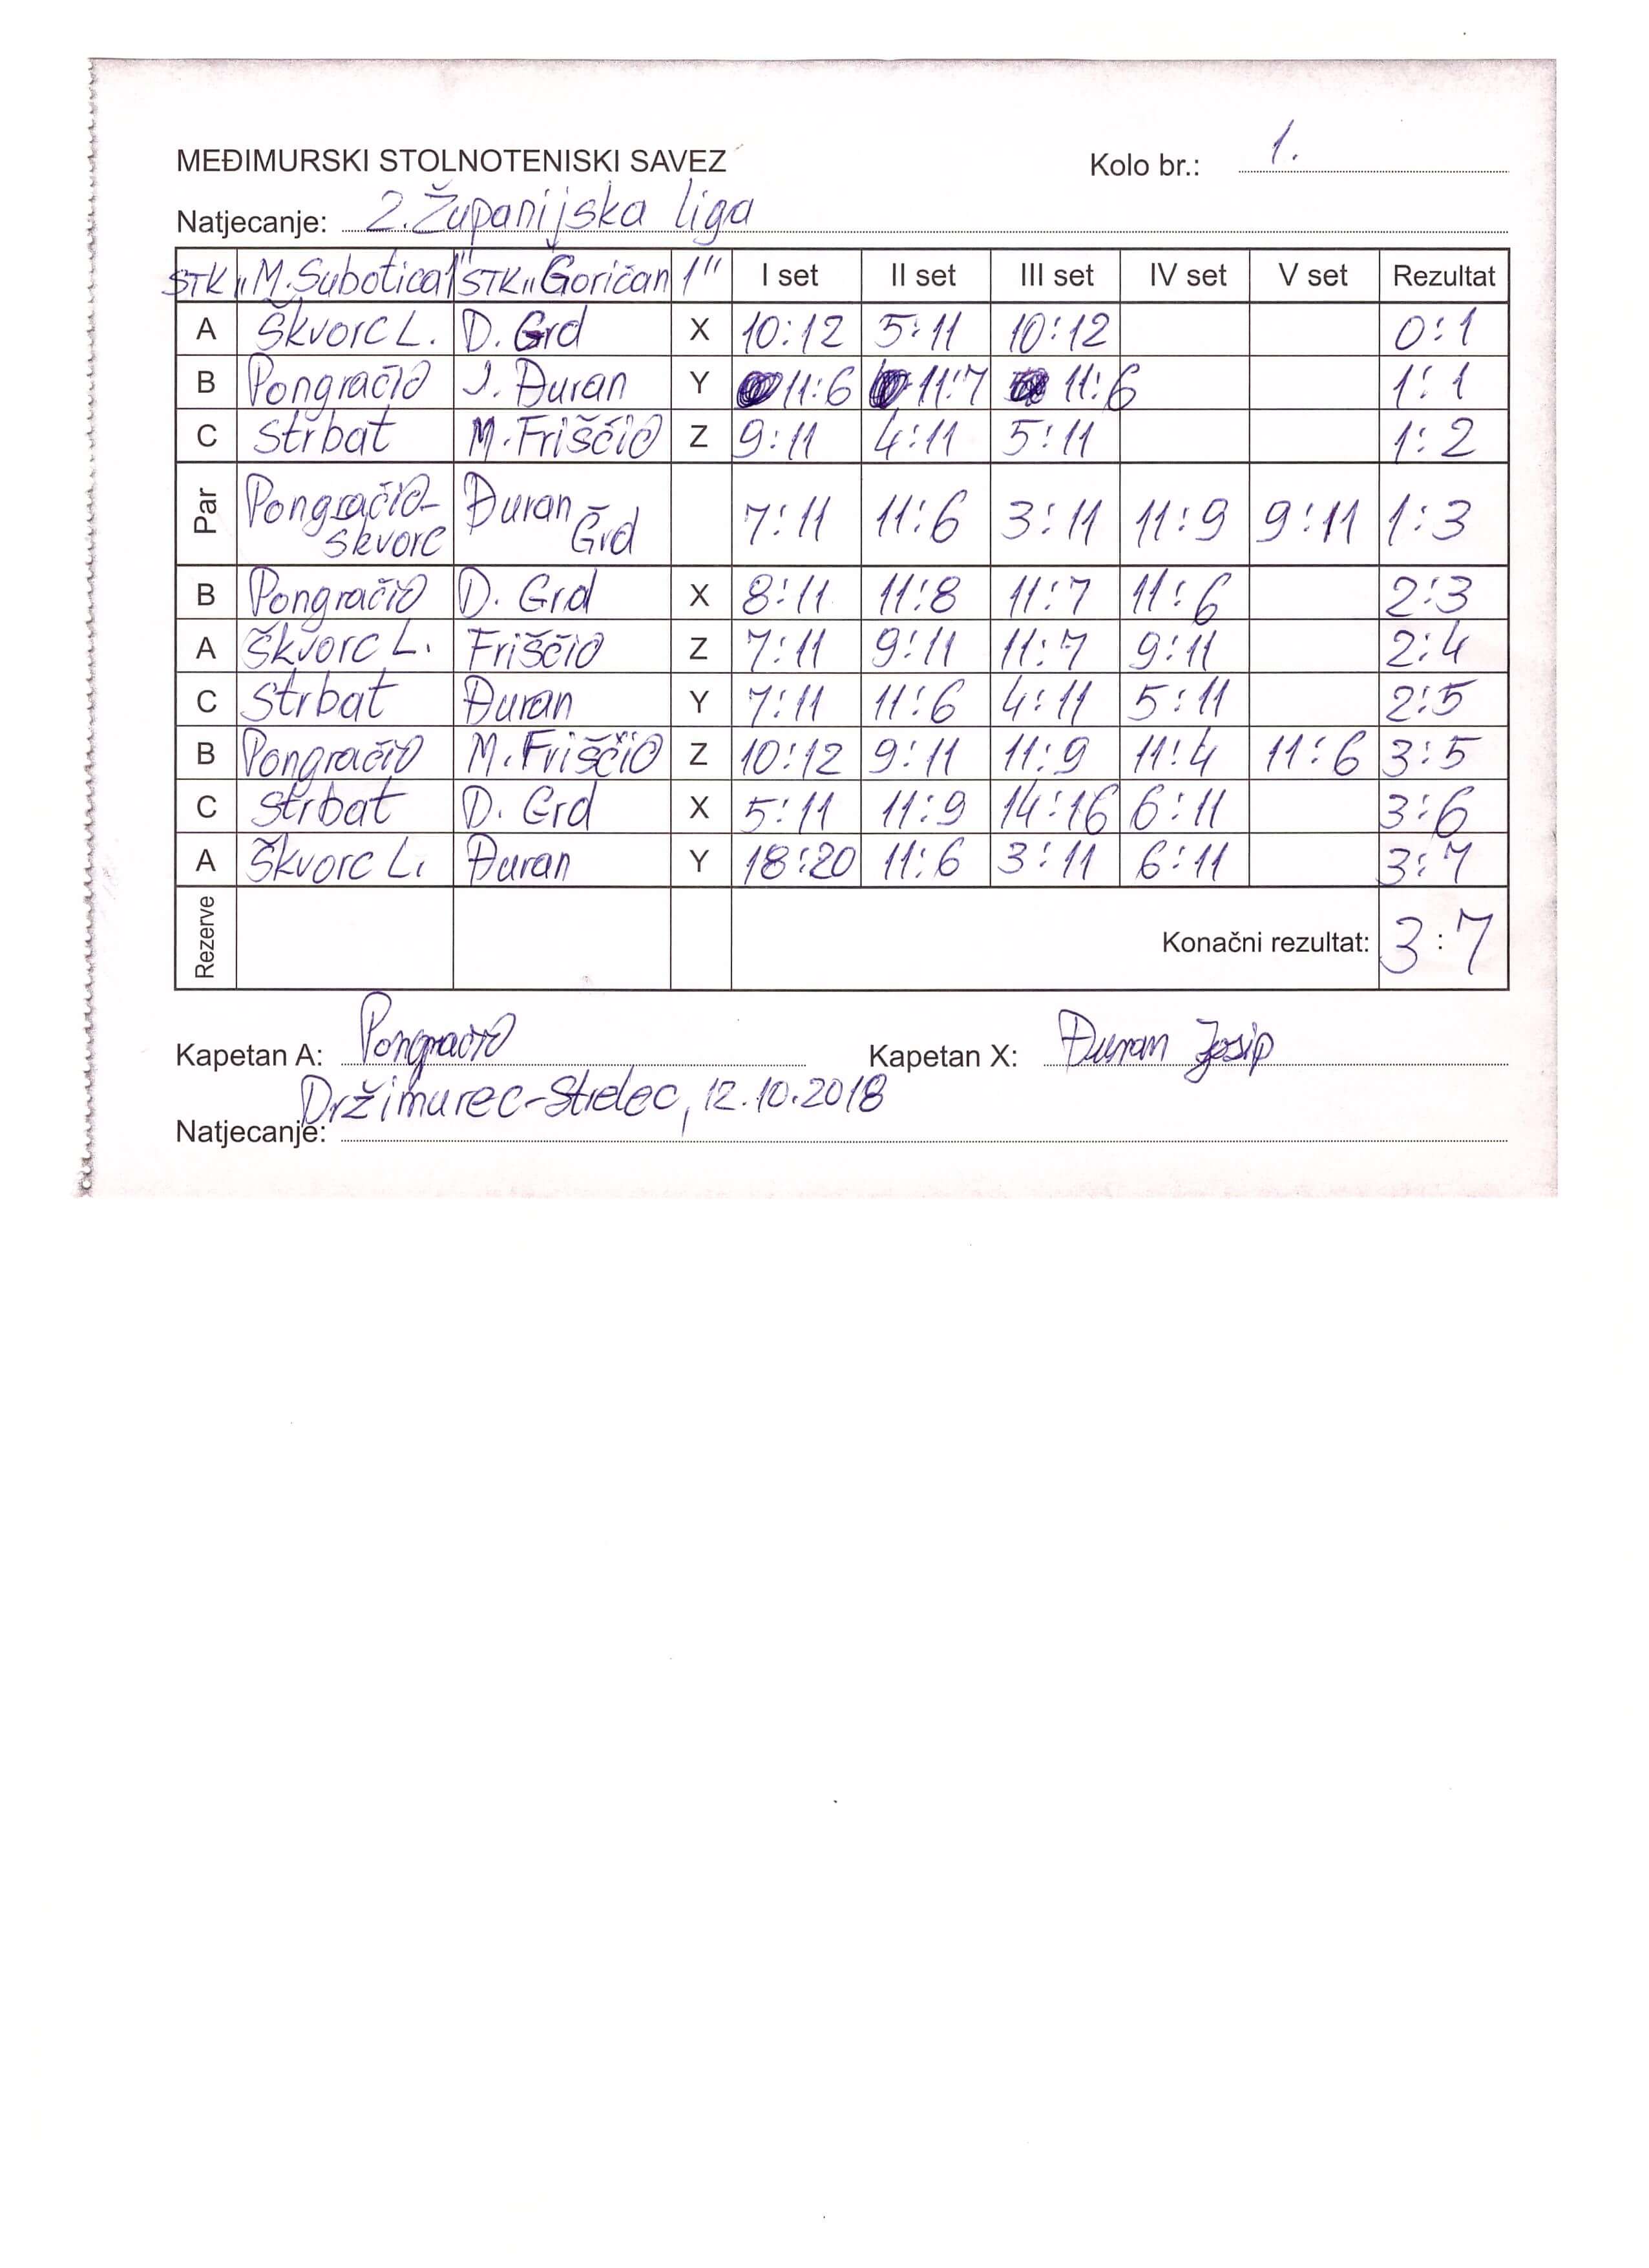 MEĐIMURSKI STOLNOTENISKI SAVEZ
Kolo br.: 1.
Natjecanje: 2. Županijska liga
STK „M. Subotica" STK „Goričan 1" I set II set III set IV set V set Rezultat
A Škvorc L. D. Grd X 10:12 5:11 10:12 0:1
B Pongračić J. Đuran Y 11:6 11:7 11:6 1:1
C Štrbat M. Friščić Z 9:11 4:11 5:11 1:2
Par Pongračić- Škvorc Đuran - Grd 7:11 11:6 3:11 11:9 9:11 1:3
B Pongračić D. Grd X 8:11 11:8 11:7 11:6 2:3
A Škvorc L. Friščić Z 7:11 9:11 11:7 9:11 2:4
C Štrbat Đuran Y 7:11 11:6 4:11 5:11 2:5
B Pongračić M. Friščić Z 10:12 9:11 11:9 11:4 11:6 3:5
C Štrbat D. Grd X 5:11 11:9 14:16 6:11 3:6
A Škvorc L. Đuran Y 18:20 11:6 3:11 6:11 3:7
Rezerve Konačni rezultat: 3:7
Kapetan A: Pongračić Kapetan X: Đuran Josip
Držimurec-Strelec, 12.10.2018
Natjecanje: